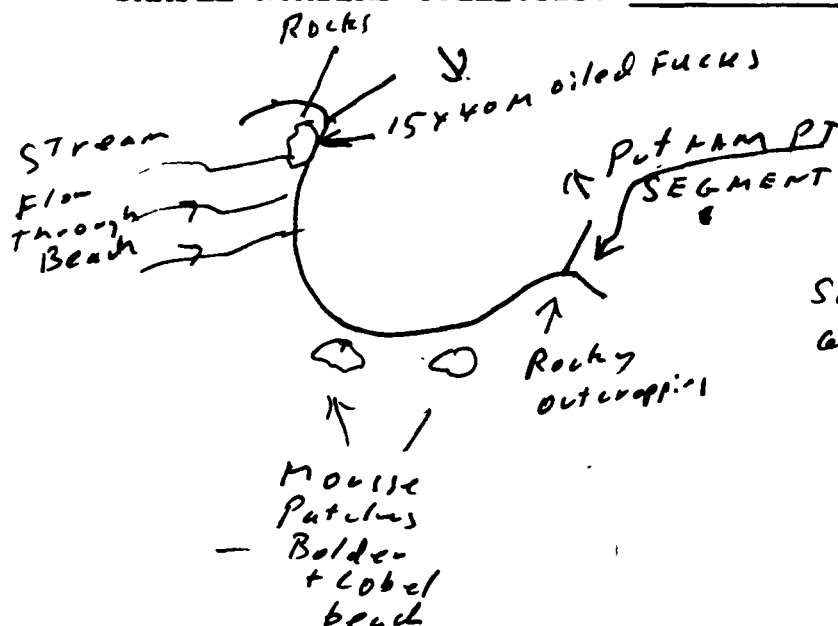 Rocks
15 x 40 M oiled Fucus
Stream
Flow
Through
Beach
Putnam PT
SEGMENT
Rocky
outcropping
Mousse
Patches
Bolder
+ Cobel
beach